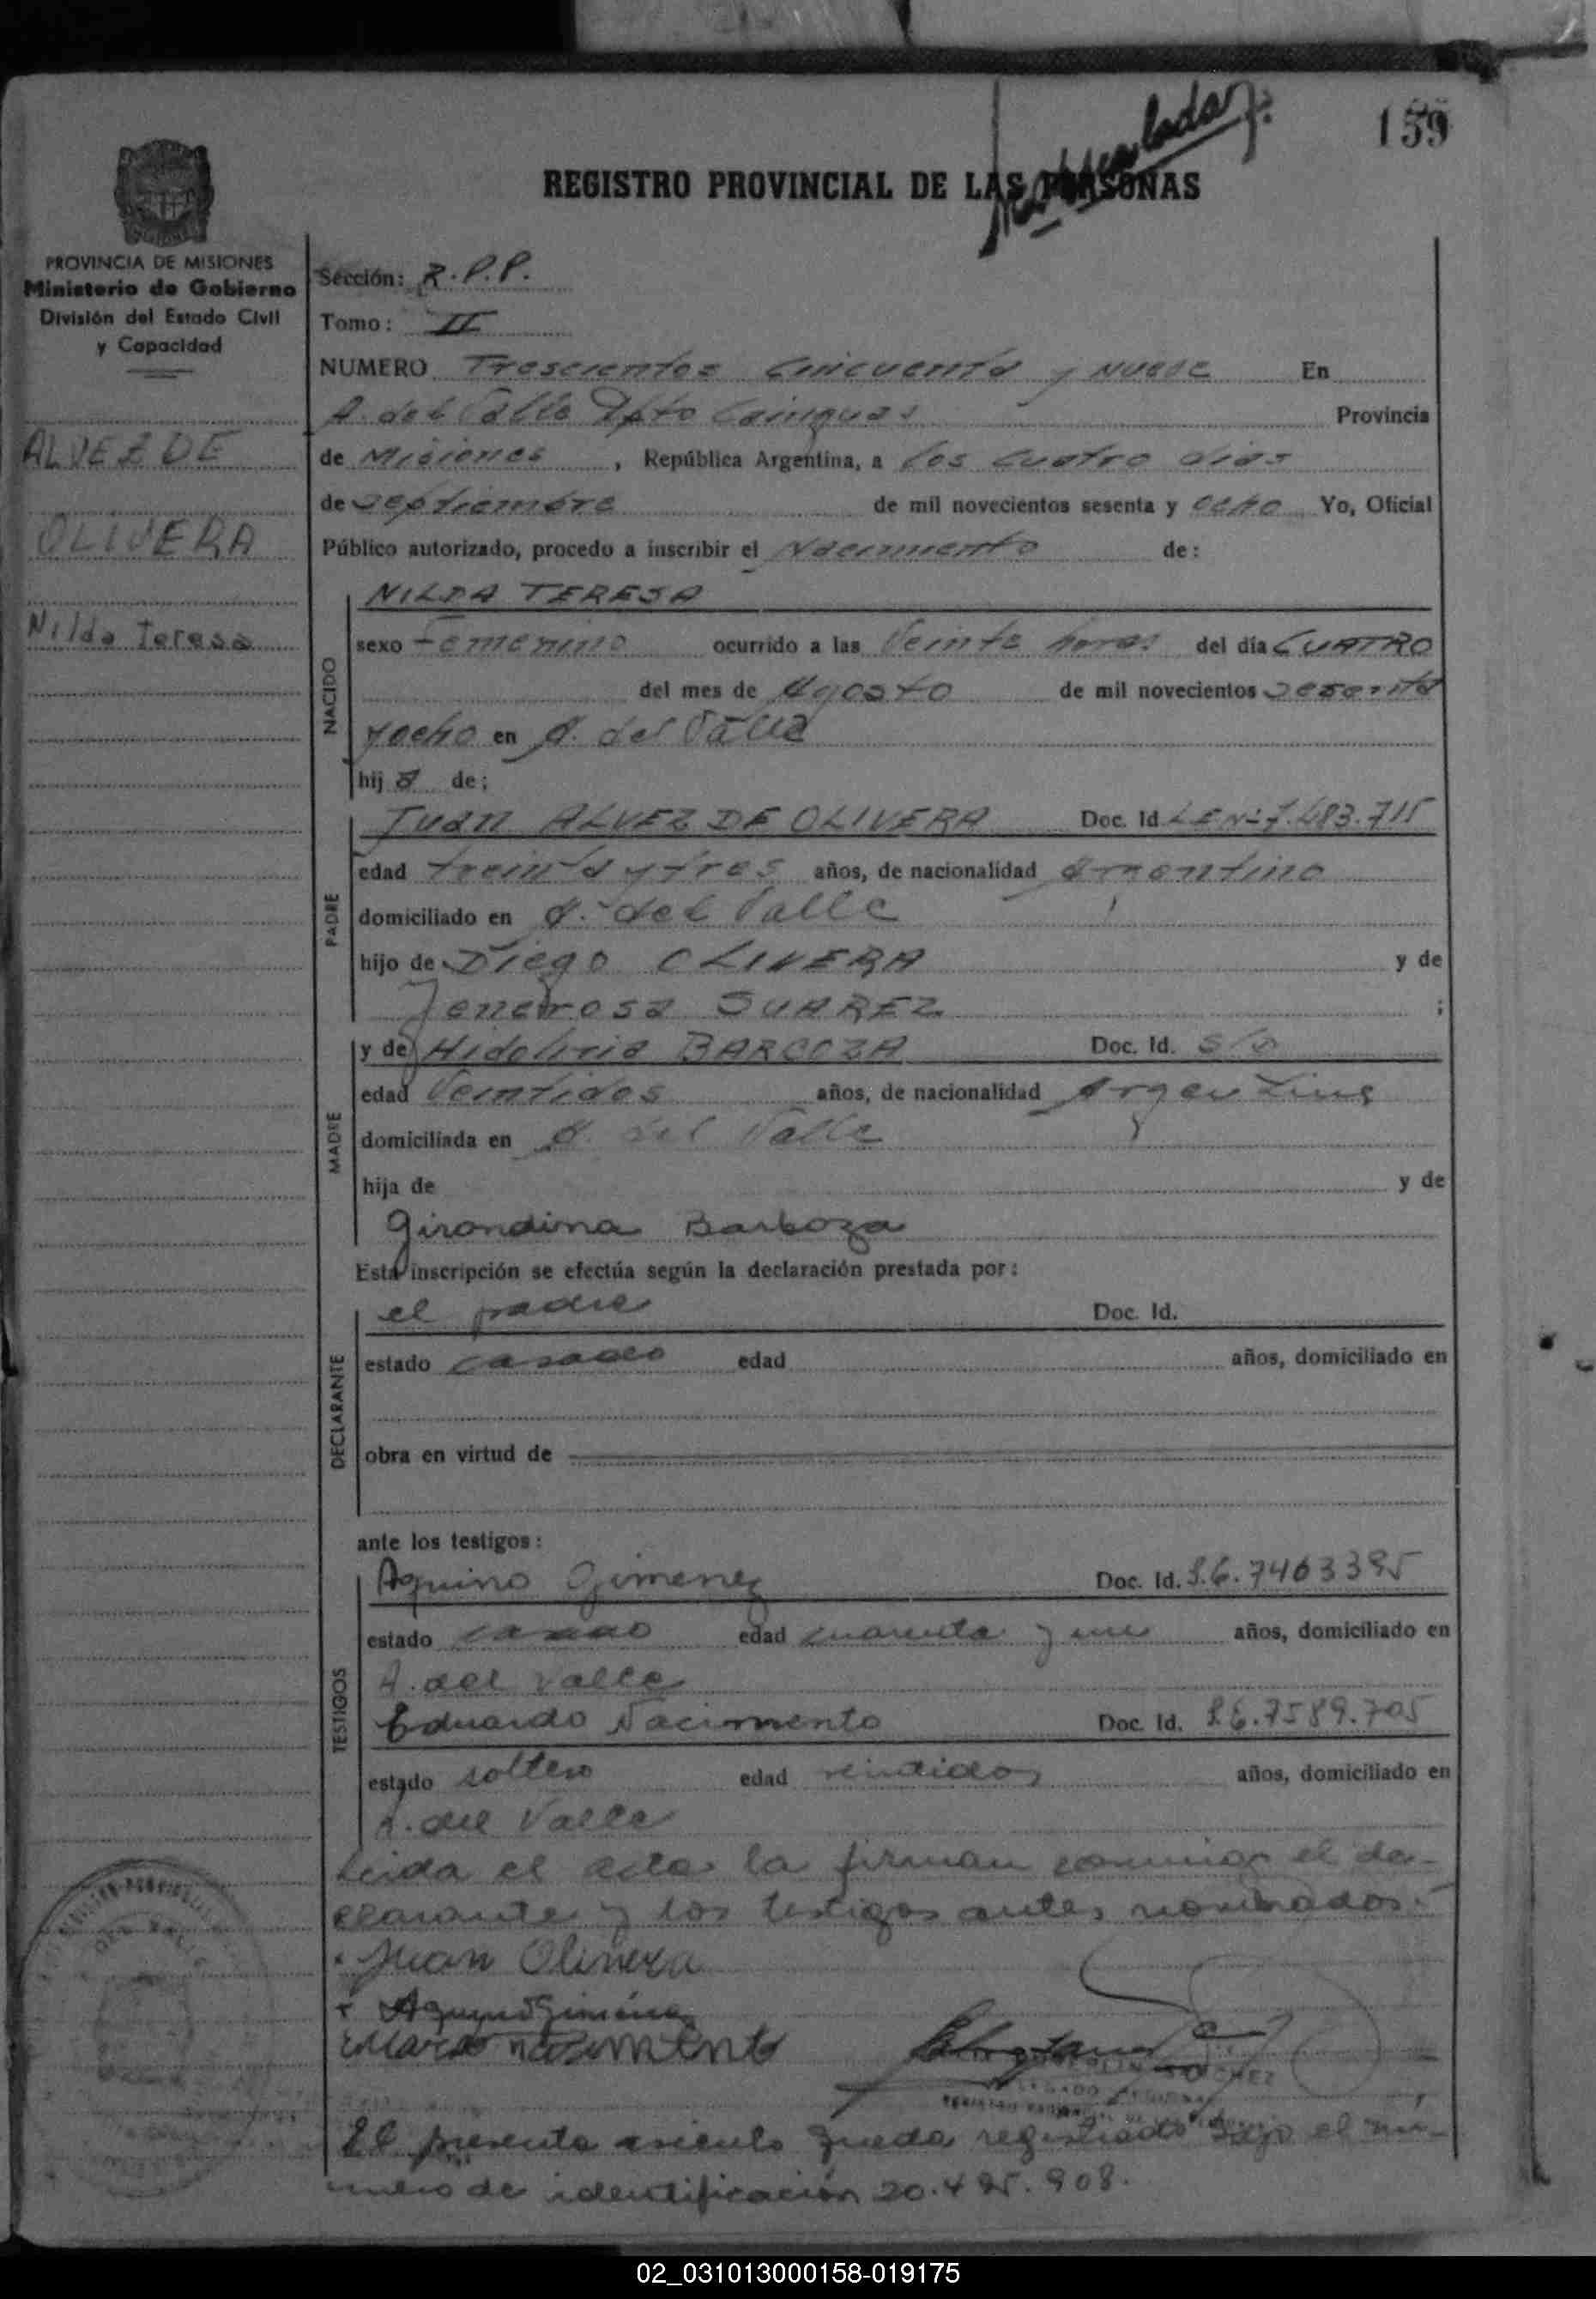 159
REGISTRO PROVINCIAL DE LAS PERSONAS
PROVINCIA DE MISIONES
Ministerio de Gobierno
División del Estado Civil
y Capacidad
ALVEZ DE
OLIVERA
Nilda Teresa
Sección: R.P.P.
Tomo: II
NUMERO Trescientos cincuenta y nueve En
A. del Valle Dpto Cainguas Provincia
de Misiones, República Argentina, a los cuatro dias
de septiembre de mil novecientos sesenta y ocho Yo, Oficial
Público autorizado, procedo a inscribir el Nacimiento de:
NACIDO
NILDA TERESA
sexo Femenino ocurrido a las Veinte horas del día CUATRO
del mes de Agosto de mil novecientos sesenta
y ocho en A. del Valle
hija de;
PADRE
Juan ALVEZ DE OLIVERA Doc. Id L.E.Nº 7.483.715
edad treinta y tres años, de nacionalidad Argentino
domiciliado en A. del Valle
hijo de Diego OLIVERA y de
Jenerosa SUAREZ ;
MADRE
y de BARBOZA Doc. Id.
edad Veintidos años, de nacionalidad Argentina
domiciliada en A. del Valle
hija de y de
Girondina Barboza
Esta inscripción se efectúa según la declaración prestada por:
DECLARANTE
el padre Doc. Id.
estado casado edad años, domiciliado en
obra en virtud de
ante los testigos:
TESTIGOS
Aquino Gimenez Doc. Id. 7403395
estado casado edad cuarenta y un años, domiciliado en
A. del Valle
Eduardo Nacimento Doc. Id. 7589.705
estado soltero edad veintidos años, domiciliado en
A. del Valle
Leida el acta la firman conmigo el de-
clarante y los testigos antes nombrados.-
Juan Olivera
Aquino Giménez
Nacimento
SANCHEZ
El presente asiento queda registrado bajo el nú-
mero de identificación 20.495.908.
02_031013000158-019175